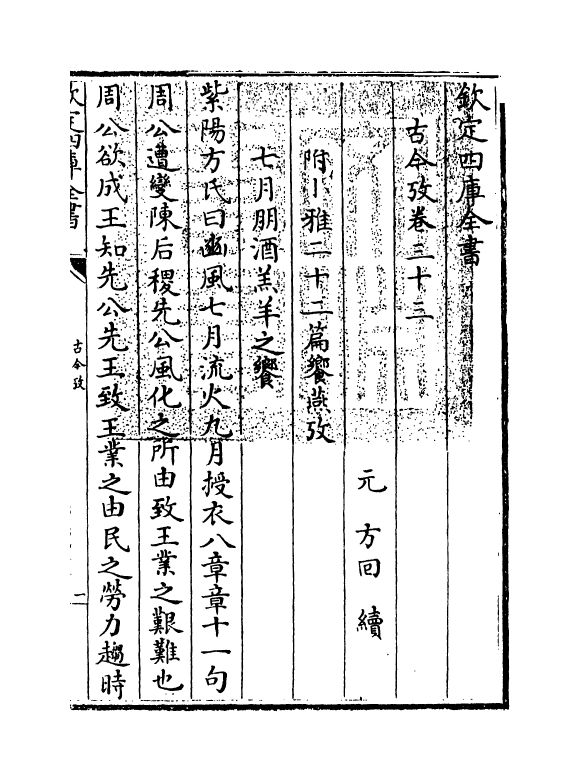 欽定四庫全書
古今攷卷三十三
元 方回 續
附小雅二十二篇饗燕攷
七月朋酒羔羊之饗
紫陽方氏曰豳風七月流火九月授衣八章章十一句
周公遭變陳后稷先公風化之所由致王業之艱難也
周公欲成王知先公先王致王業之由民之勞力趨時
欽定四庫全書
古今攷